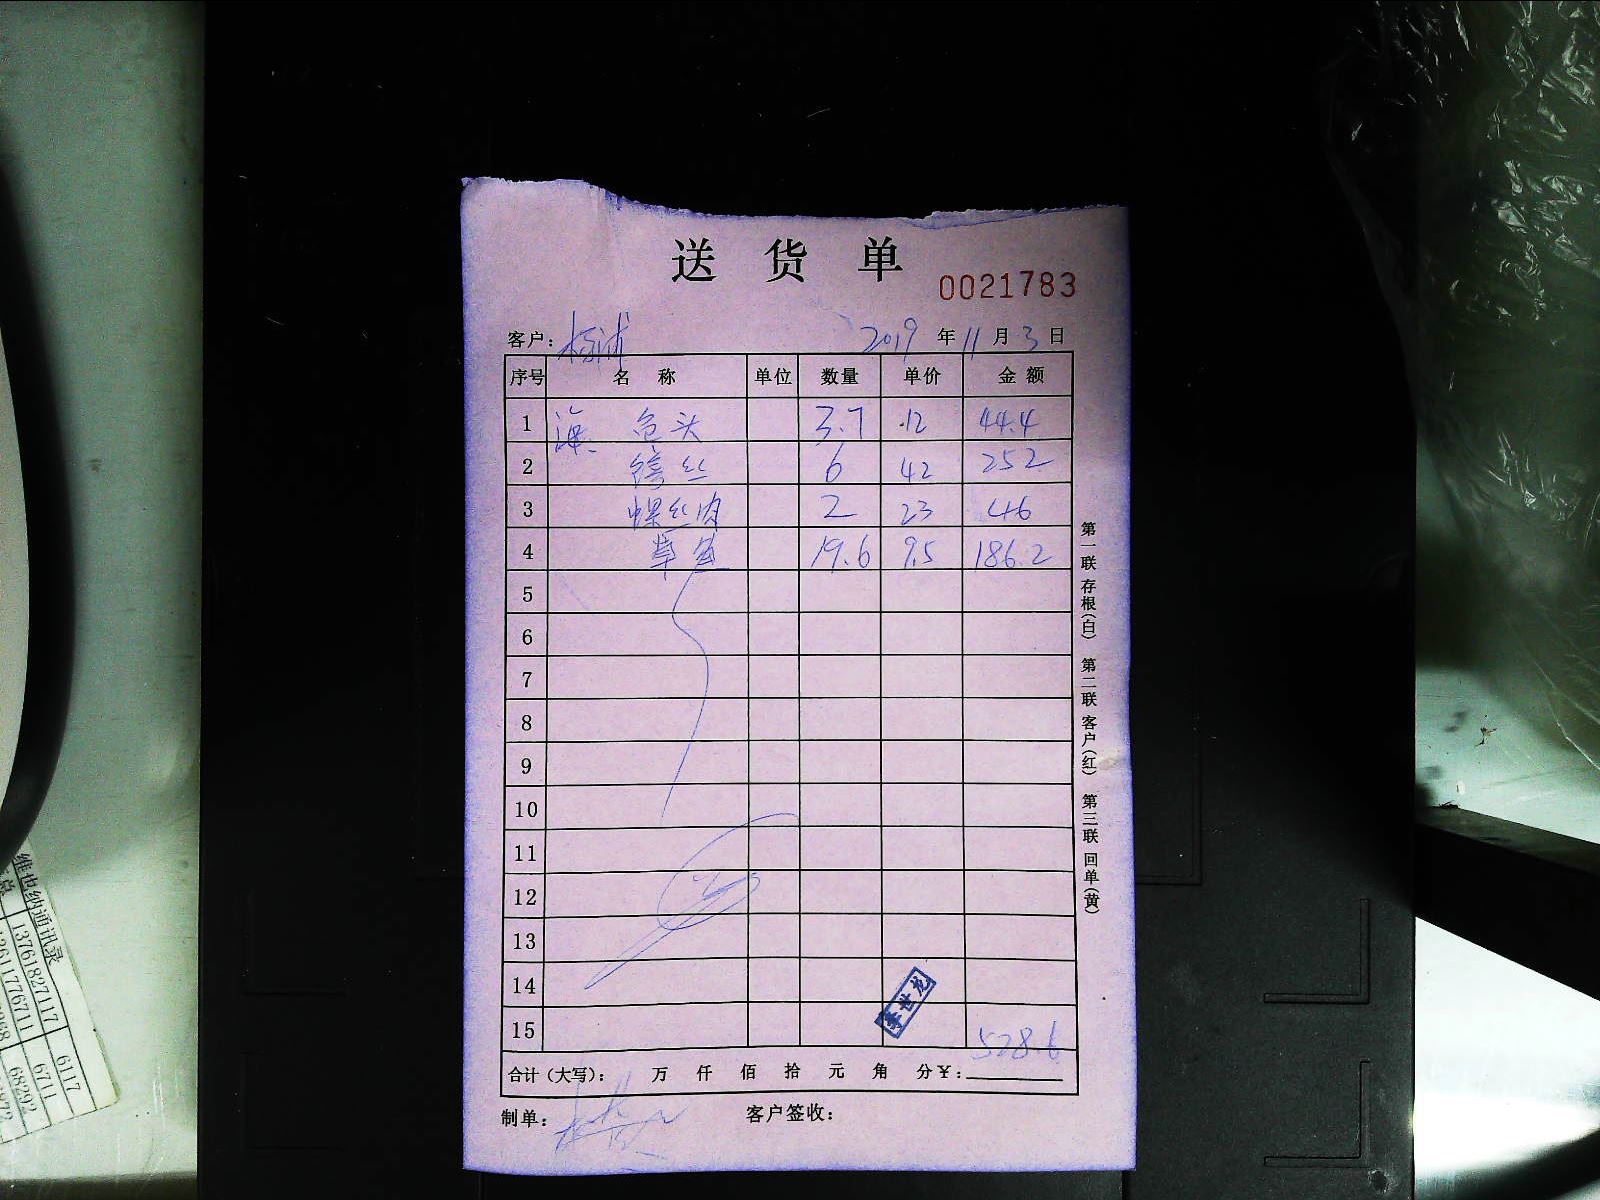 送货单
0021783
客户: 杨浦 2019年11月3日
序号 名称 单位 数量 单价 金额
1 鱼头 3.7 12 44.4
2 鳝丝 6 42 252
3 螺丝肉 2 23 46
4 草鱼 19.6 9.5 186.2
5
6
7
8
9
10
11
12
13
14
15 528.6
李世龙
合计(大写): 万 仟 佰 拾 元 角 分 ¥:
制单: 客户签收:
第一联 存根(白) 第二联 客户(红) 第三联 回单(黄)
维也纳通讯录
13761827117 6117
13611776711 6711
68292